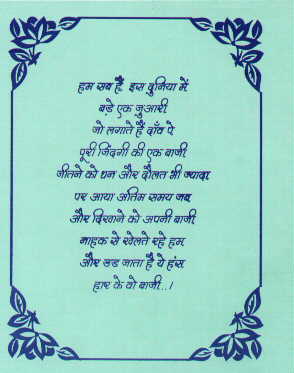 हम सब हैं इस दुनिया में
बड़े एक जुआरी
जो लगाते हैं दाँव पे
पूरी जिंदगी की एक बाजी
जीतने को धन और दौलत भी ज्यादा
पर आया अंतिम समय जब
और दिखाने को अपनी बाजी
नाहक से खेलते रहे हम
और उड जाता है ये हंस
हार के वो बाजी...।